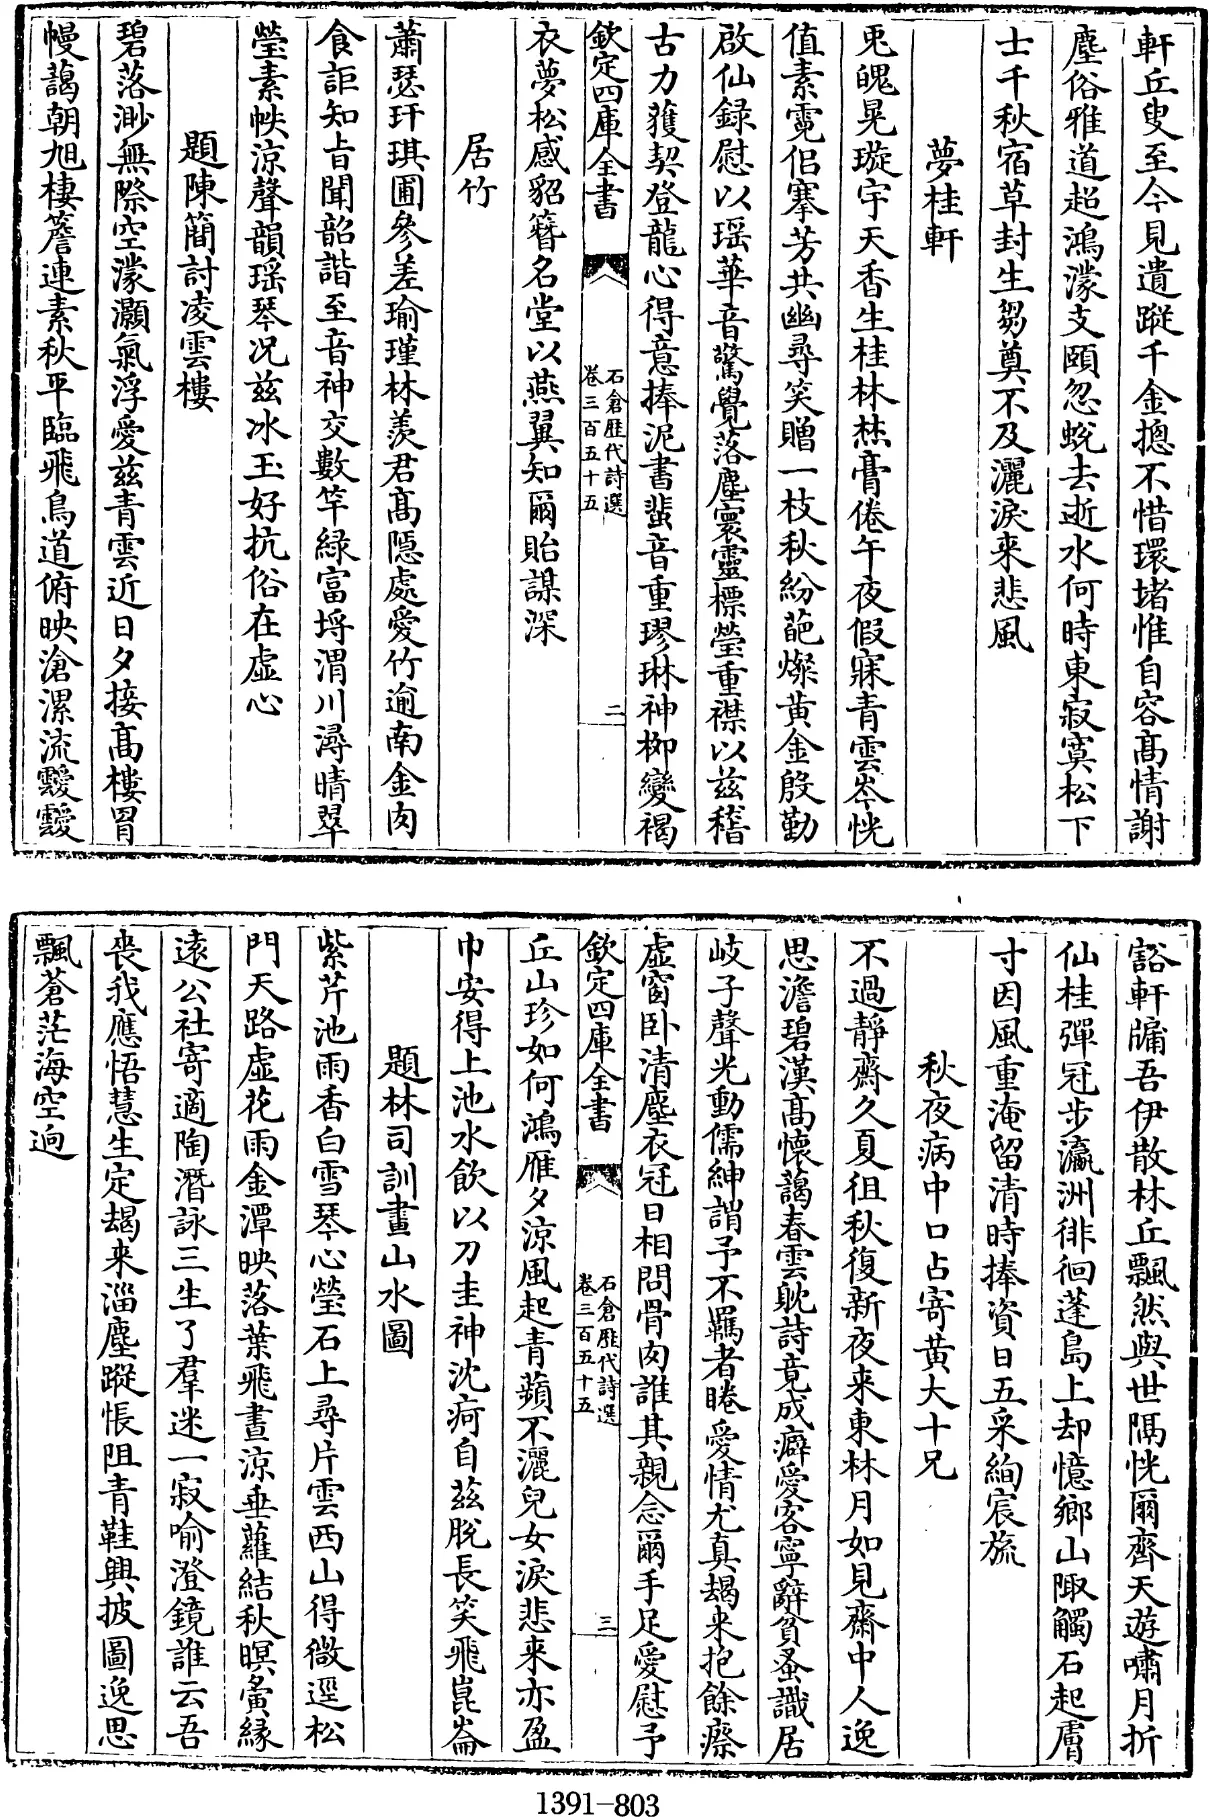 軒丘叟至今見遺蹤千金摠不惜環堵惟自容髙情謝
塵俗雅道超鴻濛支頤忽蛻去逝水何時東寂寞松下
士千秋宿草封生芻奠不及灑淚来悲風
夢桂軒
兎魄晃璇宇天香生桂林焚膏倦午夜假寐青雲岑恍
值素霓侣搴芳共幽尋笑贈一枝秋紛葩燦黄金殷勤
啟仙録慰以瑶華音驚覺落塵寰靈標瑩重襟以兹稽
古力獲契登龍心得意捧泥書蜚音重璆琳神柳變褐
欽定四庫全書
石倉歴代詩選
卷三百五十五
二
衣夢松感貂簪名堂以燕翼知爾貽謀深
居竹
蕭瑟玕琪圃參差瑜瑾林羡君髙隠處愛竹逾南金肉
食詎知旨聞韶諧至音神交數竿緑富埒渭川潯晴翠
瑩素帙涼聲韻瑶琴况兹冰玉好抗俗在虚心
題陳簡討凌雲樓
碧落渺無際空濛灝氣浮愛兹青雲近日夕接髙樓罥
幔藹朝旭棲簷連素秋平臨飛鳥道俯映滄漯流靉靉
豁軒牖吾伊散林丘飄然與世隔恍爾齊天遊嘯月折
仙桂彈冠步瀛洲徘徊蓬島上却憶鄉山陬觸石起膚
寸因風重淹留清時捧資日五采絢宸旒
秋夜病中口占寄黄大十兄
不過靜齋久夏徂秋復新夜来東林月如見齋中人逸
思澹碧漢髙懷藹春雲耽詩竟成癖愛客寧辭貧蚤識居
岐子聲光動儒紳謂予不羈者睠愛情尤真朅来抱餘瘵
虚窗卧清塵衣冠日相問骨肉誰其親念爾手足愛慰予
欽定四庫全書
石倉歴代詩選
卷三百五十五
三
丘山珍如何鴻雁夕涼風起青蘋不灑兒女淚悲来亦盈
巾安得上池水飲以刀圭神沈疴自茲脱長笑飛崑崙
題林司訓畫山水圖
紫芹池雨香白雪琴心瑩石上尋片雲西山得微逕松
門天路虚花雨金潭映落葉飛晝涼垂蘿結秋暝夤縁
遠公社寄適陶潛詠三生了羣迷一寂喻澄鏡誰云吾
喪我應悟慧生定朅来淄塵蹤悵阻青鞋興披圖逸思
飄蒼茫海空逈
1391-803